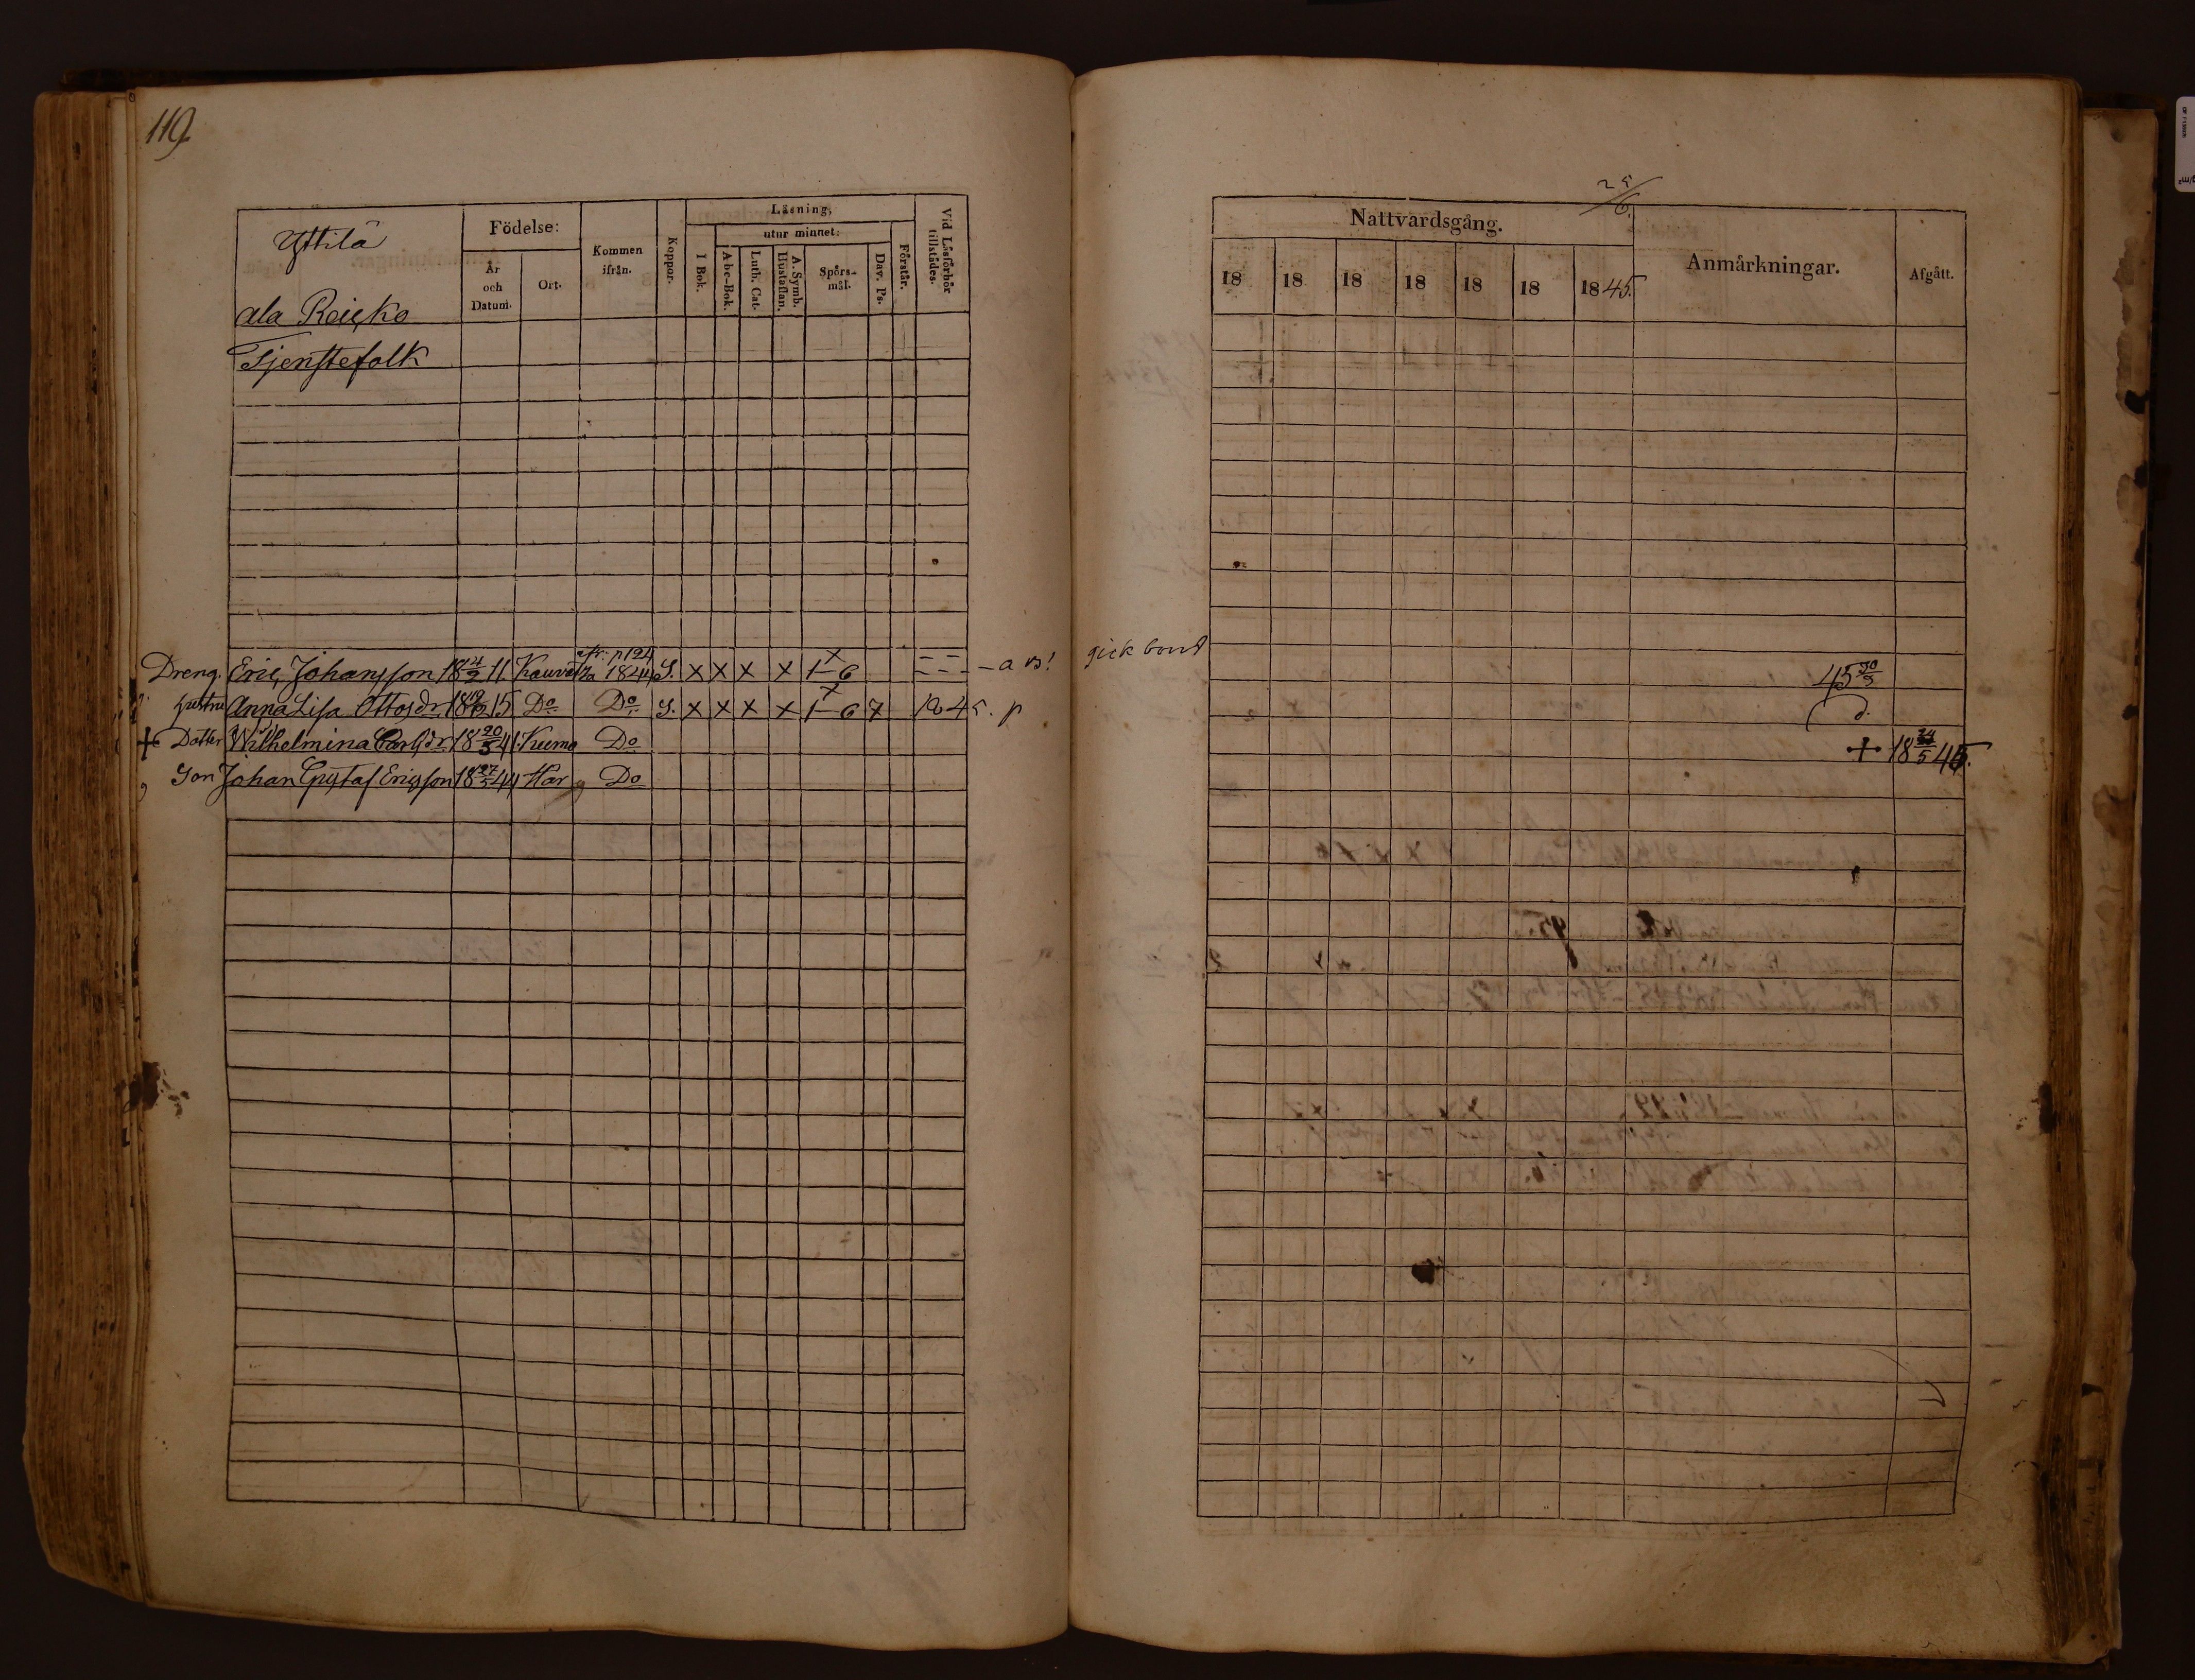 119.
Yttilä
ala Reicko
Tjenstefolk
Födelse:
År och Datum.
Ort.
Kommen ifrån.
Koppor.
Läsning,
utur minnet:
I Bok.
Abc-Bok.
Luth. Cat.
A. Symb. Hustaflan.
Spörs-mål.
Dav. Ps.
Förstår.
Vid Läsförhör tillstädes.
Dreng. Eric Johansson 18 4/2 11. Kauva p 124 1844 S. x x x x 1–6
hustru Anna Lisa Ottosdr 15 Do Do S. x x x x 1–6 7 1845. p
+ Dotter Wilhelmina Carlsdr 18 20/5 41. Kumo Do
Son Johan Gustaf Ericsson 18 27/5 44 Här Do
25/6.
Nattvardsgång.
18 18 18 18 18 18 1845.
Anmärkningar.
Afgått.
gick bort
45 30/3
d.
+ 18 24/5 45.